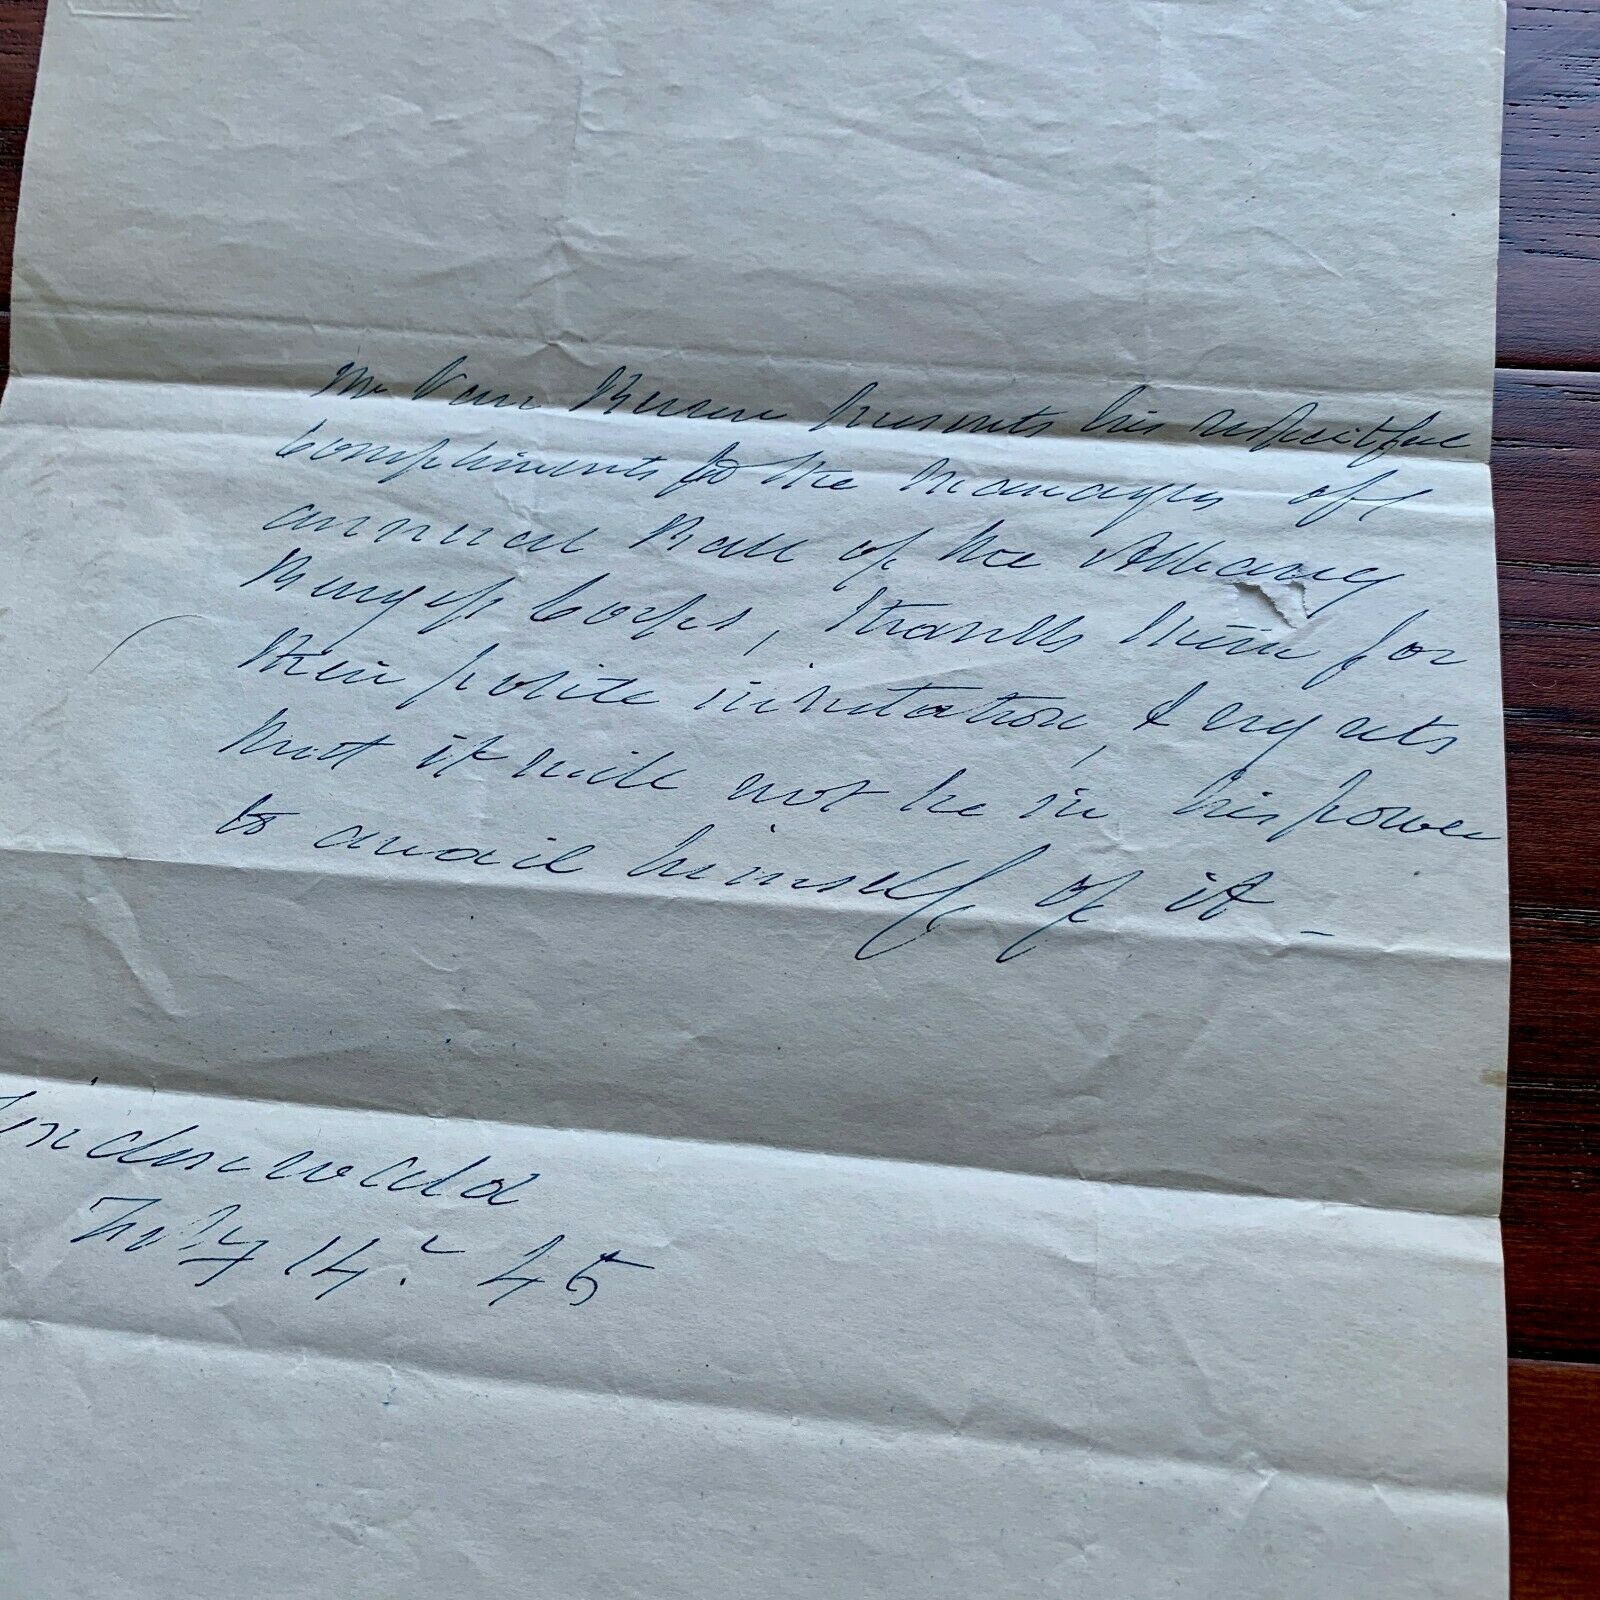 Mr Van Buren presents his respectful
compliments to the Managers of
annual Ball of the Albany
Burgess Corps, thanks them for
their polite invitation, & regrets
that it will not be in his power
to avail himself of it _
Lindenwald
July 14. 45